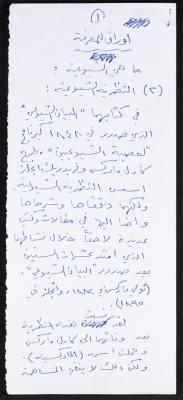 ١
أوراق للمعرفة
ما هي الشيوعية ؟
(٢) النظرية الشيوعية :
في كتابهما "البيان الشيوعي"
الذي صدر في ١٨٤٨ كبرنامج
"لعصبة الشيوعيين" وطرح
كارل ماركس وفريدريك انجلز
أسس النظرية الشيوعية
ولكنهما دققاها وشرحاها
وأضافا اليها في مقالات وكتب
عديدة لاحقاً خلال نشاطهما
الذي امتد عشرات السنين
بعد صدور "البيان الشيوعي".
(توفي ماركس في ١٨٨٣، وانجلز في
١٨٩٥).
لقد نسبت هذه النظرية
بعد وفاتهما الى كارل ماركس
وحملت اسمه (الماركسية).
ولكن ذلك لا ينفي المساهمة